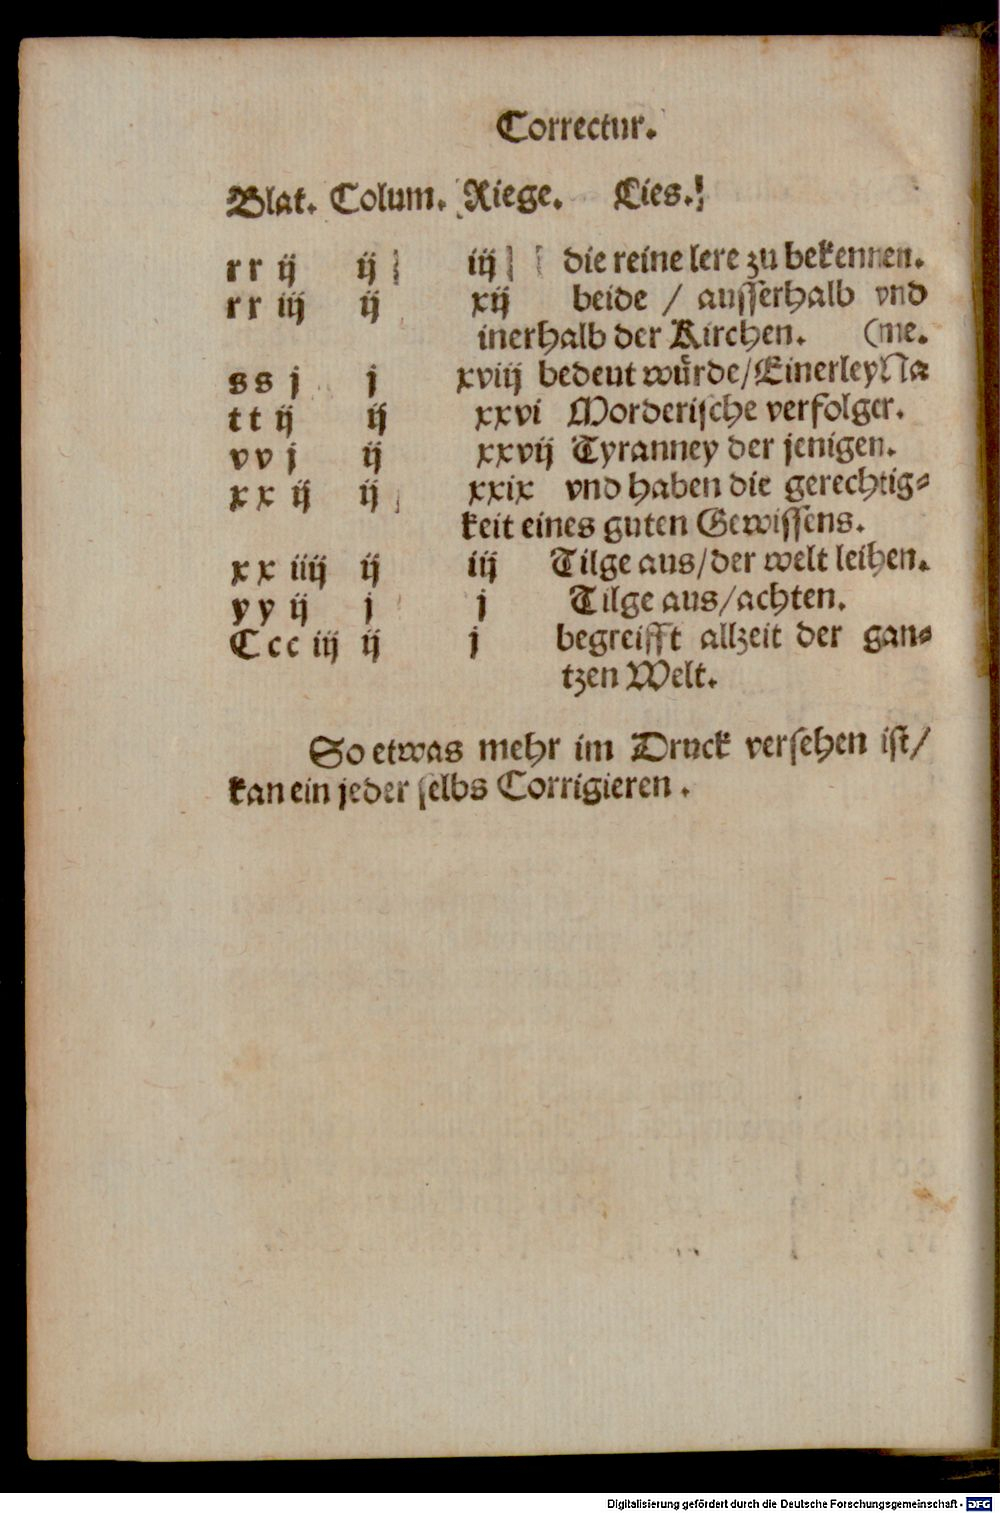 Correctur.
Blat. Colum. Riege. Lies.
rr ij ij iij die reine lere zu bekennen.
rr iij ij xij beide / ausserhalb vnd
inerhalb der Kirchen. (me.
ss j j xviij bedeut würde/EinerleyNa
tt ij ij xxvi Morderische verfolger.
vv j ij xxvij Tyranney der jenigen.
xx ij ij xxix vnd haben die gerechtig-
keit eines guten Gewissens.
xx iiij ij iij Tilge aus/der welt leihen.
yy ij j j Tilge aus/achten.
Ccc iij ij j begreifft allzeit der gan-
tzen Welt.
So etwas mehr im Druck versehen ist/
kan ein jeder selbs Corrigieren.
Digitalisierung gefördert durch die Deutsche Forschungsgemeinschaft - DFG